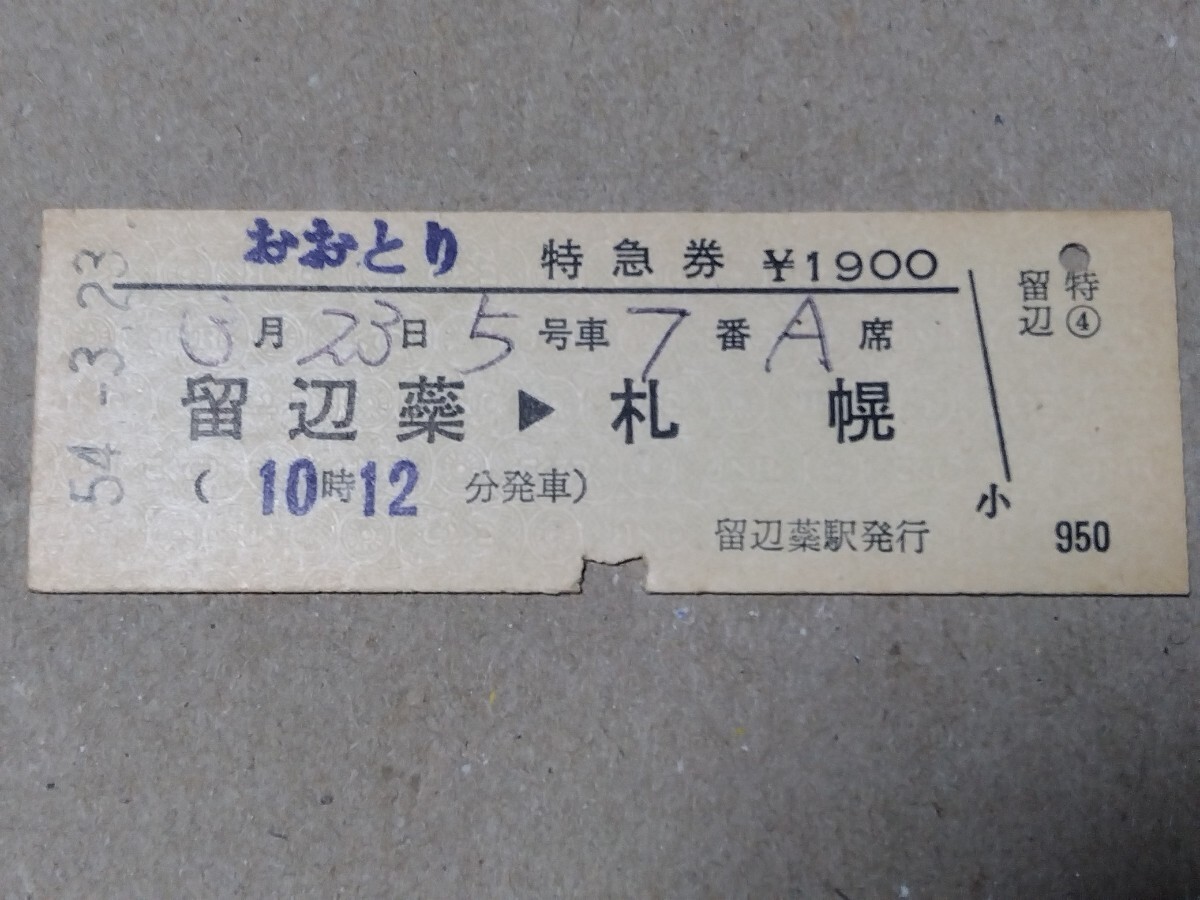 54.-3.23
おおとり 特急券 ¥1900
月 23日 5号車 7番 A席
留辺蘂▶札幌
(10時12分発車)
留辺蘂駅発行
特④
留辺
小
950